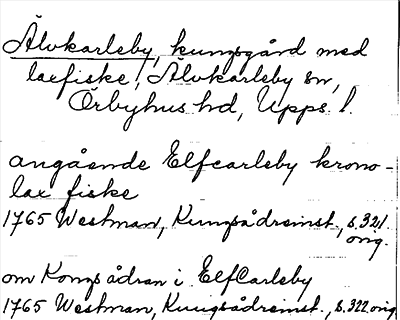 Älvkarleby, kungsgård med
laxfiske, Älvkarleby sn,
Örbyhus hd, Upps. l.
angående Elfcarleby krono-
lax fiske
1765 Westman, Kungsådreinst., s.321.
orig.
om Kongsådran i ElfCarleby
1765 Westman, Kungsådreinst., s.322 orig